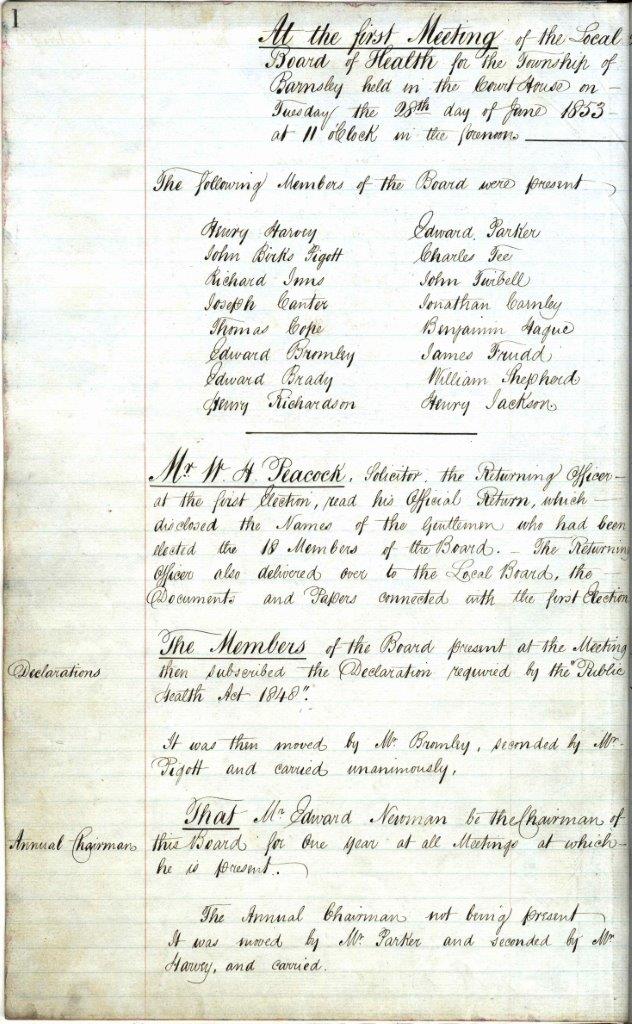 1
At the first Meeting of the Local
Board of Health for the Township of
Barnsley held in the Court House on
Tuesday the 28th day of June 1853
at 11 o'Clock in the forenoon
The following Members of the Board were present
Henry Harvey Edward Parker
John Birks Pigott Charles Tee
Richard Inns John Twibell
Joseph Canter Jonathan Carnley
Thomas Cope Benjamin Hague
Edward Bromley James Frudd
Edward Brady William Shepherd
Henry Richardson Henry Jackson
Mr W. H. Peacock, Solicitor, the Returning Officer
at the first Election, read his Official Return, which
disclosed the Names of the Gentlemen who had been
elected the 18 Members of the Board. – The Returning
Officer also delivered over to the Local Board, the
Documents and Papers connected with the first Election
The Members of the Board present at the Meeting
Declarations then subscribed the Declaration required by the "Public
Health Act 1848".
It was then moved by Mr. Bromley, seconded by Mr.
Pigott and carried unanimously,
That Mr Edward Newman be the Chairman of
Annual Chairman this Board for one year at all Meetings at which
he is present.
The Annual Chairman not being present
It was moved by Mr. Parker and seconded by Mr.
Harvey, and carried.